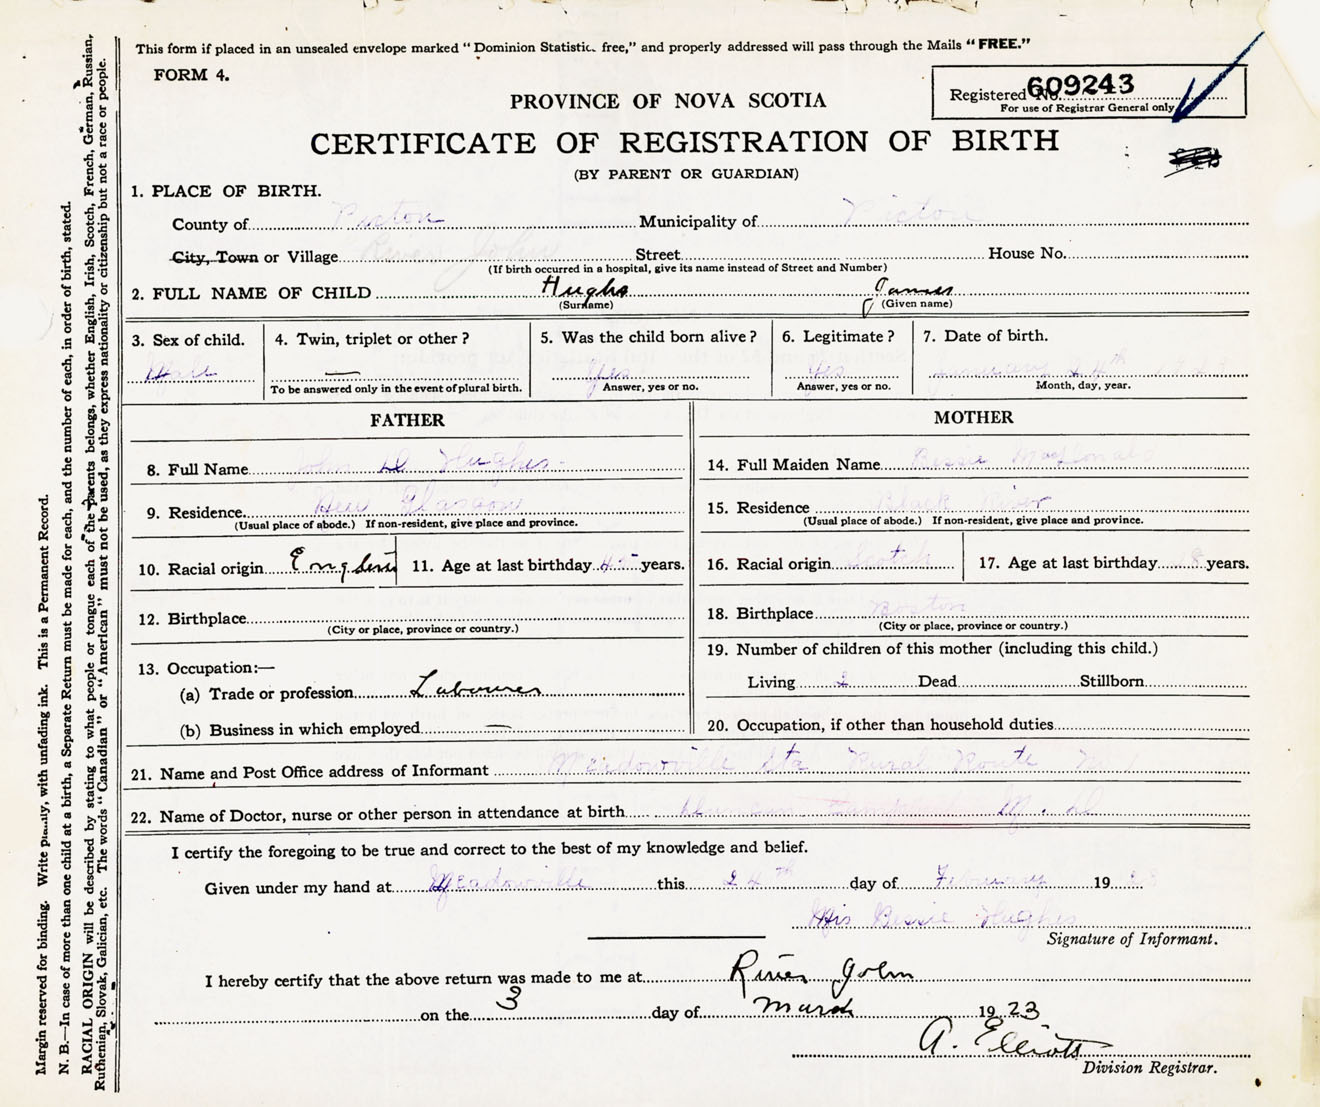 This form if placed in an unsealed envelope marked “Dominion Statistic. free,” and properly addressed will pass through the Mails “FREE.”
FORM 4.
Registered No. 609243
For use of Registrar General only
PROVINCE OF NOVA SCOTIA
CERTIFICATE OF REGISTRATION OF BIRTH
(BY PARENT OR GUARDIAN)
1. PLACE OF BIRTH.
County of Pictou Municipality of Pictou
City, Town or Village River John Street House No.
(If birth occurred in a hospital, give its name instead of Street and Number)
2. FULL NAME OF CHILD Hughs James
(Surname) (Given name)
3. Sex of child. 4. Twin, triplet or other? 5. Was the child born alive? 6. Legitimate? 7. Date of birth.
Male — Yes Yes January 24th 1923
To be answered only in the event of plural birth. Answer, yes or no. Answer, yes or no. Month, day, year.
FATHER
8. Full Name John D Hughes
9. Residence New Glasgow
(Usual place of abode.) If non-resident, give place and province.
10. Racial origin English 11. Age at last birthday 45 years.
12. Birthplace
(City or place, province or country.)
13. Occupation:—
(a) Trade or profession Labourer
(b) Business in which employed —
MOTHER
14. Full Maiden Name Bessie MacDonald
15. Residence Black River
(Usual place of abode.) If non-resident, give place and province.
16. Racial origin Scotch 17. Age at last birthday years.
18. Birthplace Boston
(City or place, province or country.)
19. Number of children of this mother (including this child.)
Living Dead Stillborn
20. Occupation, if other than household duties
21. Name and Post Office address of Informant Meadowville Sta Rural Route No 1
22. Name of Doctor, nurse or other person in attendance at birth M. D
I certify the foregoing to be true and correct to the best of my knowledge and belief.
Given under my hand at Meadowville this 24th day of February 19
Mrs Bessie Hughes
Signature of Informant.
I hereby certify that the above return was made to me at River John
on the 3 day of March 1923
A. Elliott
Division Registrar.
Margin reserved for binding. Write plainly, with unfading ink. This is a Permanent Record.
N. B.—In case of more than one child at a birth, a Separate Return must be made for each, and the number of each, in order of birth, stated.
RACIAL ORIGIN will be described by stating to what people or tongue each of the parents belongs, whether English, Irish, Scotch, French, German, Russian,
Ruthenian, Slovak, Galician, etc. The words “Canadian” or “American” must not be used, as they express nationality or citizenship but not a race or people.